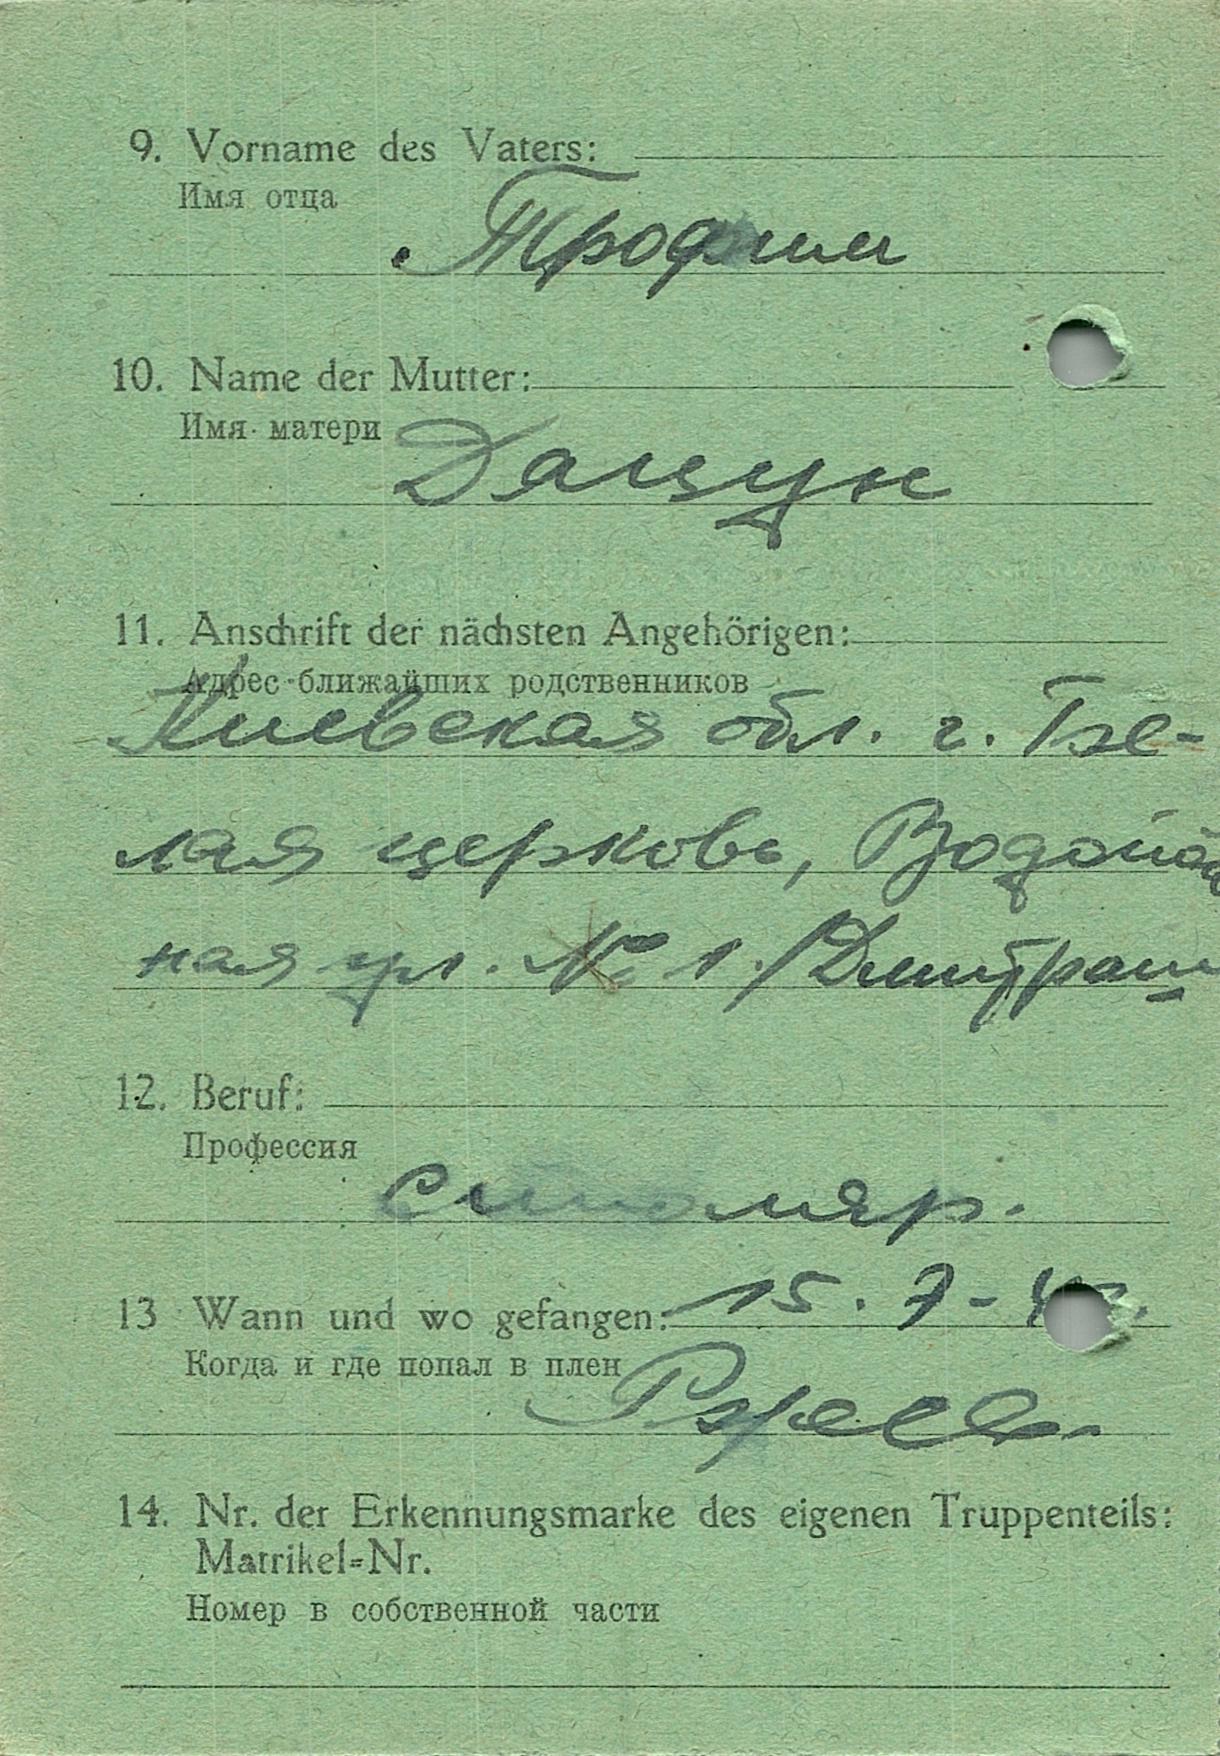 9. Vorname des Vaters:
Имя отца
Трофим
10. Name der Mutter:
Имя матери
Дацун
11. Anschrift der nächsten Angehörigen:
Адрес ближайших родственников
Киевская обл. г. Бе-
лая церковь, Водопой
ная ул. № 1. /Дмитраш
12. Beruf:
Профессия
столяр.
13 Wann und wo gefangen: 15. 7-
Когда и где попал в плен
14. Nr. der Erkennungsmarke des eigenen Truppenteils:
Matrikel=Nr.
Номер в собственной части